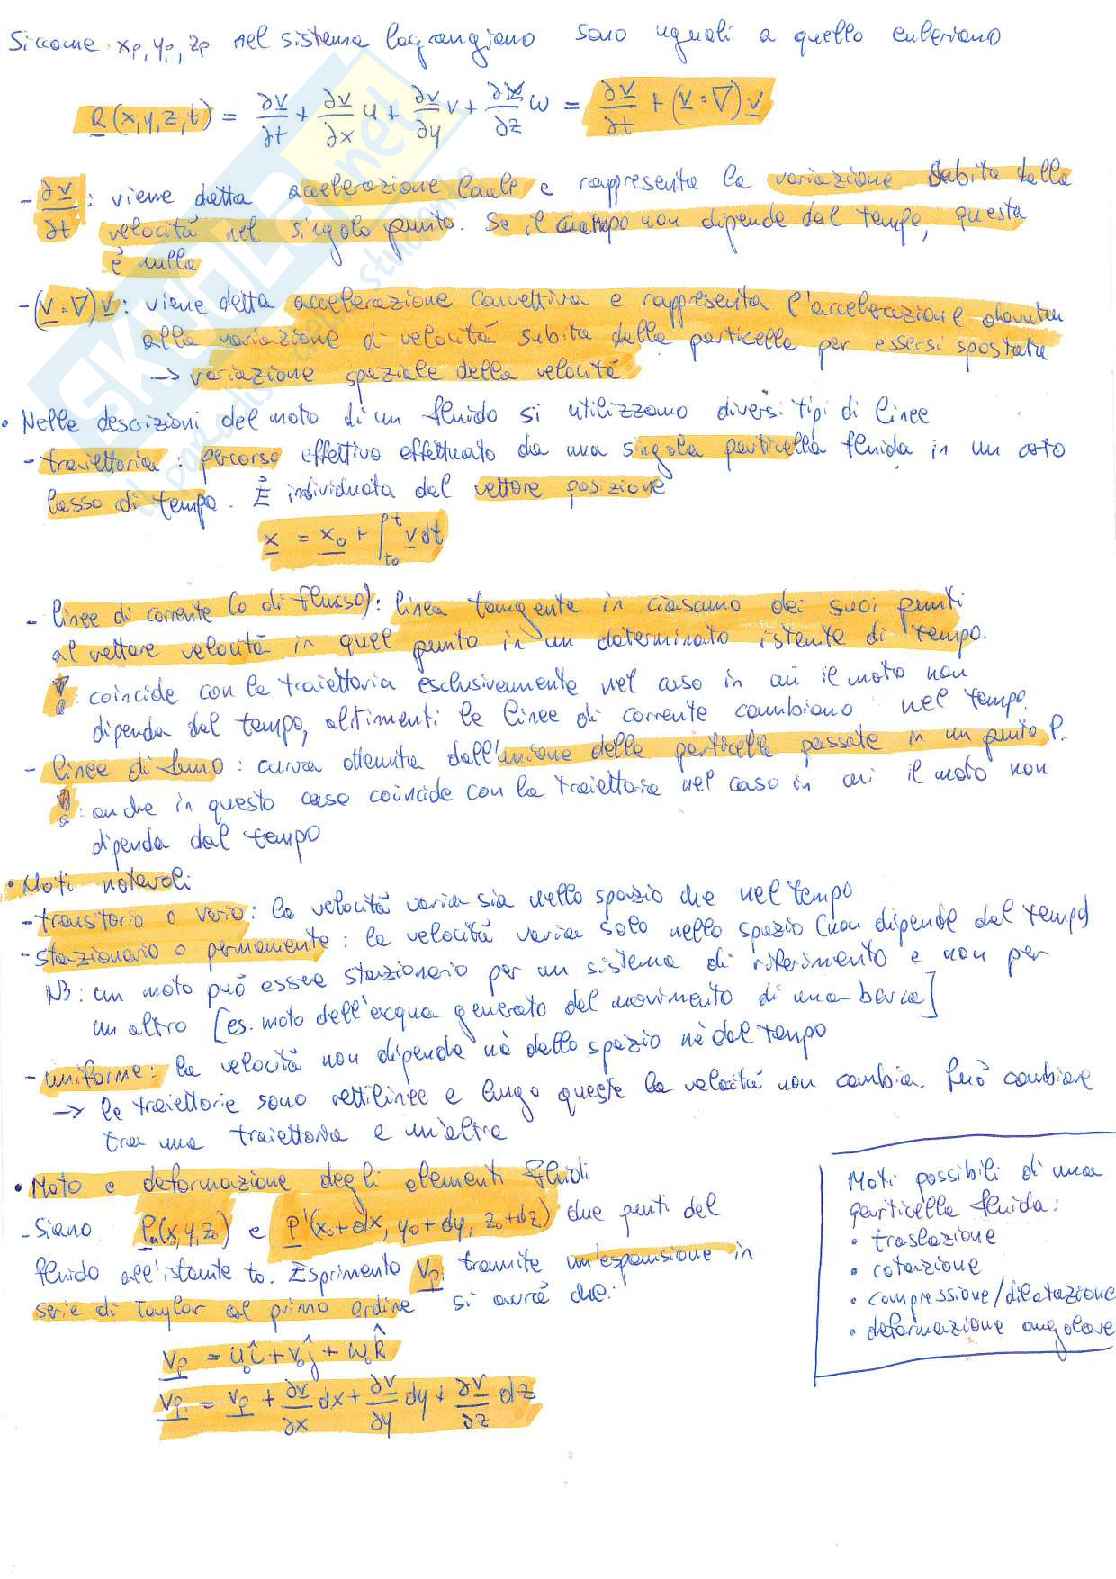 Siccome xp, yp, zp nel sistema lagrangiano sono uguali a quello euleriano
a(x,y,z,t) = ∂v/∂t + ∂v/∂x u + ∂v/∂y v + ∂v/∂z w = ∂v/∂t + (v·∇)v
- ∂v/∂t : viene detta accelerazione locale e rappresenta la variazione subita dalla
velocità nel singolo punto. Se il campo non dipende dal tempo, questa
è nulla
- (v·∇)v : viene detta accelerazione convettiva e rappresenta l'accelerazione dovuta
alla variazione di velocità subita dalla particella per essersi spostata
→ variazione spaziale della velocità
• Nelle descrizioni del moto di un fluido si utilizzano diversi tipi di linee
- traiettoria : percorso effettivo effettuato da una singola particella fluida in un certo
lasso di tempo. È individuata dal vettore posizione
x = x0 + ∫t0^t v dt
- linee di corrente (o di flusso) : linea tangente in ciascuno dei suoi punti
al vettore velocità in quel punto in un determinato istante di tempo.
! : coincide con la traiettoria esclusivamente nel caso in cui il moto non
dipenda dal tempo, altrimenti le linee di corrente cambiano nel tempo.
- linee di fumo : curva ottenuta dall'unione delle particelle passate in un punto P.
! : anche in questo caso coincide con la traiettoria nel caso in cui il moto non
dipenda dal tempo
• Moti notevoli
- transitorio o vario : la velocità varia sia nello spazio che nel tempo
- stazionario o permanente : la velocità varia solo nello spazio (non dipende dal tempo)
NB : un moto può essere stazionario per un sistema di riferimento e non per
un altro [es. moto dell'acqua generato dal movimento di una barca]
- uniforme : la velocità non dipende nè dallo spazio nè dal tempo
→ le traiettorie sono rettilinee e lungo queste la velocità non cambia. Può cambiare
tra una traiettoria e un'altra
• Moto e deformazione degli elementi fluidi
- Siano P(x0,y0,z0) e P'(x0+dx, y0+dy, z0+dz) due punti del
fluido all'istante t0. Esprimento VP' tramite un'espansione in
serie di Taylor al primo ordine si avrà che:
vP = u0 î + v0 ĵ + w0 k̂
vP' = vP + ∂v/∂x dx + ∂v/∂y dy + ∂v/∂z dz
Moti possibili di una
particella fluida:
• traslazione
• rotazione
• compressione/dilatazione
• deformazione angolare
SKUOLA.net